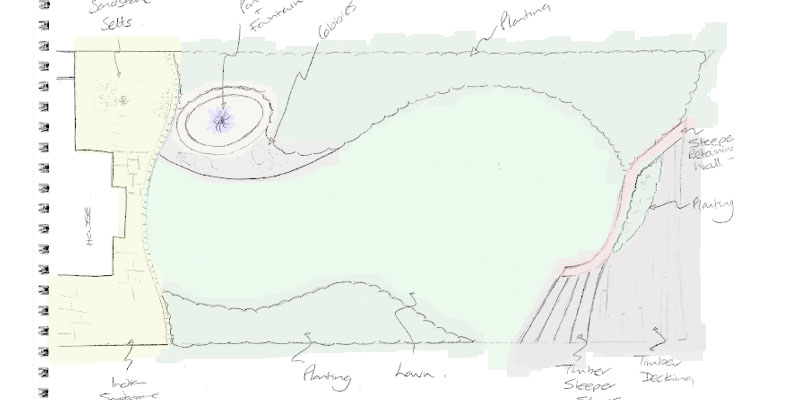 Sandstone
Setts.
Pond
+
Fountain
Cobbles
Planting
Sleeper
Retaining
Wall
Planting
HOUSE
Indian
Sandstone
Planting
Lawn.
Timber
Sleeper
Steps
Timber
Decking